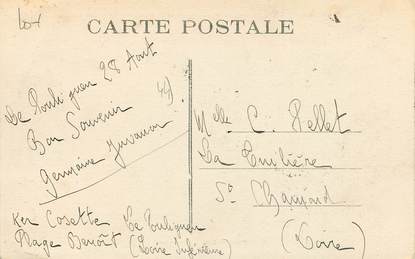 lot
CARTE POSTALE
Le Pouliguen 28 Août
Bon Souvenir
Germaine
Melle C. Pellet
La
St Chamond
(Loire)
Ker Cosette Le Pouliguen
Plage Benoît (Loire Inférieure)